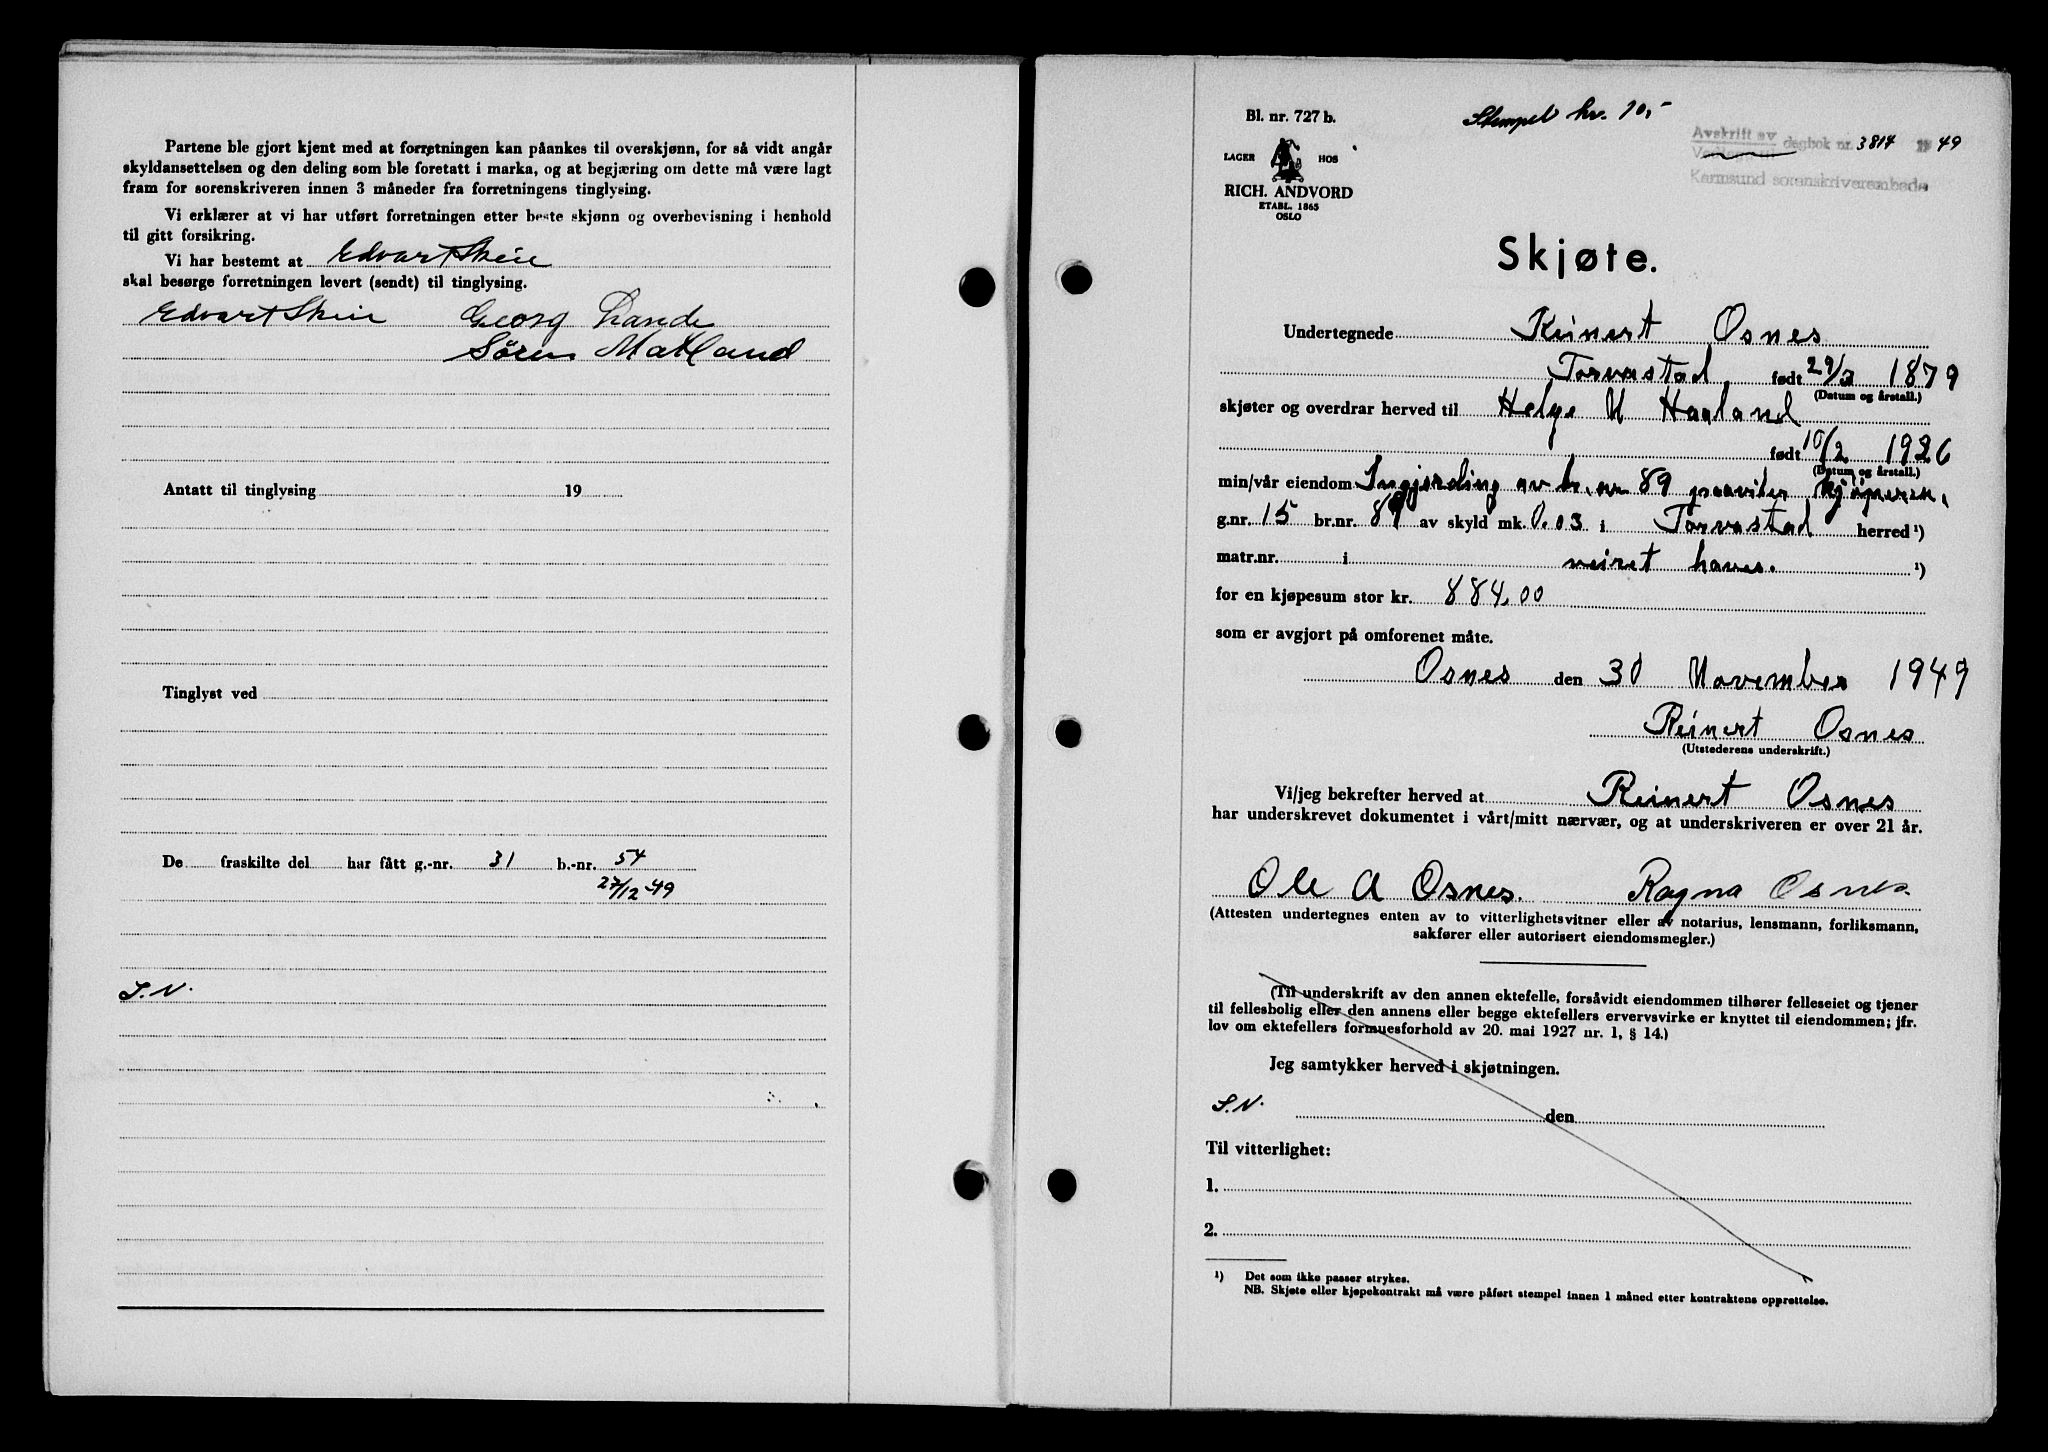 Partene ble gjort kjent med at forretningen kan påankes til overskjønn, for så vidt angår
skyldansettelsen og den deling som ble foretatt i marka, og at begjæring om dette må være lagt
fram for sorenskriveren innen 3 måneder fra forretningens tinglysing.
Vi erklærer at vi har utført forretningen etter beste skjønn og overbevisning i henhold
til gitt forsikring.
Vi har bestemt at Edvart Skeie
skal besørge forretningen levert (sendt) til tinglysing.
Edvart Skeie Georg Lande
Sören Matland
Antatt til tinglysing 19
Tinglyst ved
De fraskilte del har fått g.-nr. 31 b.-nr. 54
27/12 49
S.N.
Bl. nr. 727 b.
Stempel kr. 10,-
Avskrift av
dagbok nr. 3814 19 49
Karmsund sorenskriverembede
LAGER HOS
RICH. ANDVORD
ETABL. 1865
OSLO
Skjøte.
Undertegnede Reinert Osnes
Torvastad født 29/3 1879
(Datum og årstall.)
skjøter og overdrar herved til Helge N Haaland
født 10/2 1926
(Datum og årstall.)
min/vår eiendom Ingjerding av br. nr 89 paaviler kjöperen,
g.nr. 15 br.nr. 89 av skyld mk. 0.03 i Torvastad herred ¹)
matr.nr. i veiret haves. ¹)
for en kjøpesum stor kr. 884,00
som er avgjort på omforenet måte.
Osnes den 30 November 1949
Reinert Osnes
(Utstederens underskrift.)
Vi/jeg bekrefter herved at Reinert Osnes
har underskrevet dokumentet i vårt/mitt nærvær, og at underskriveren er over 21 år.
Ole A Osnes. Ragna Osnes.
(Attesten undertegnes enten av to vitterlighetsvitner eller av notarius, lensmann, forliksmann,
sakfører eller autorisert eiendomsmegler.)
(Til underskrift av den annen ektefelle, forsåvidt eiendommen tilhører felleseiet og tjener
til fellesbolig eller den annens eller begge ektefellers ervervsvirke er knyttet til eiendommen; jfr.
lov om ektefellers formuesforhold av 20. mai 1927 nr. 1, § 14.)
Jeg samtykker herved i skjøtningen.
S.N. den
Til vitterlighet:
1.
2.
¹) Det som ikke passer strykes.
NB. Skjøte eller kjøpekontrakt må være påført stempel innen 1 måned etter kontraktens opprettelse.